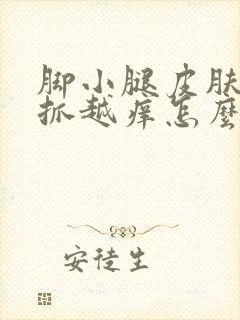 脚小腿皮肤
抓越痒怎麽
安徒生